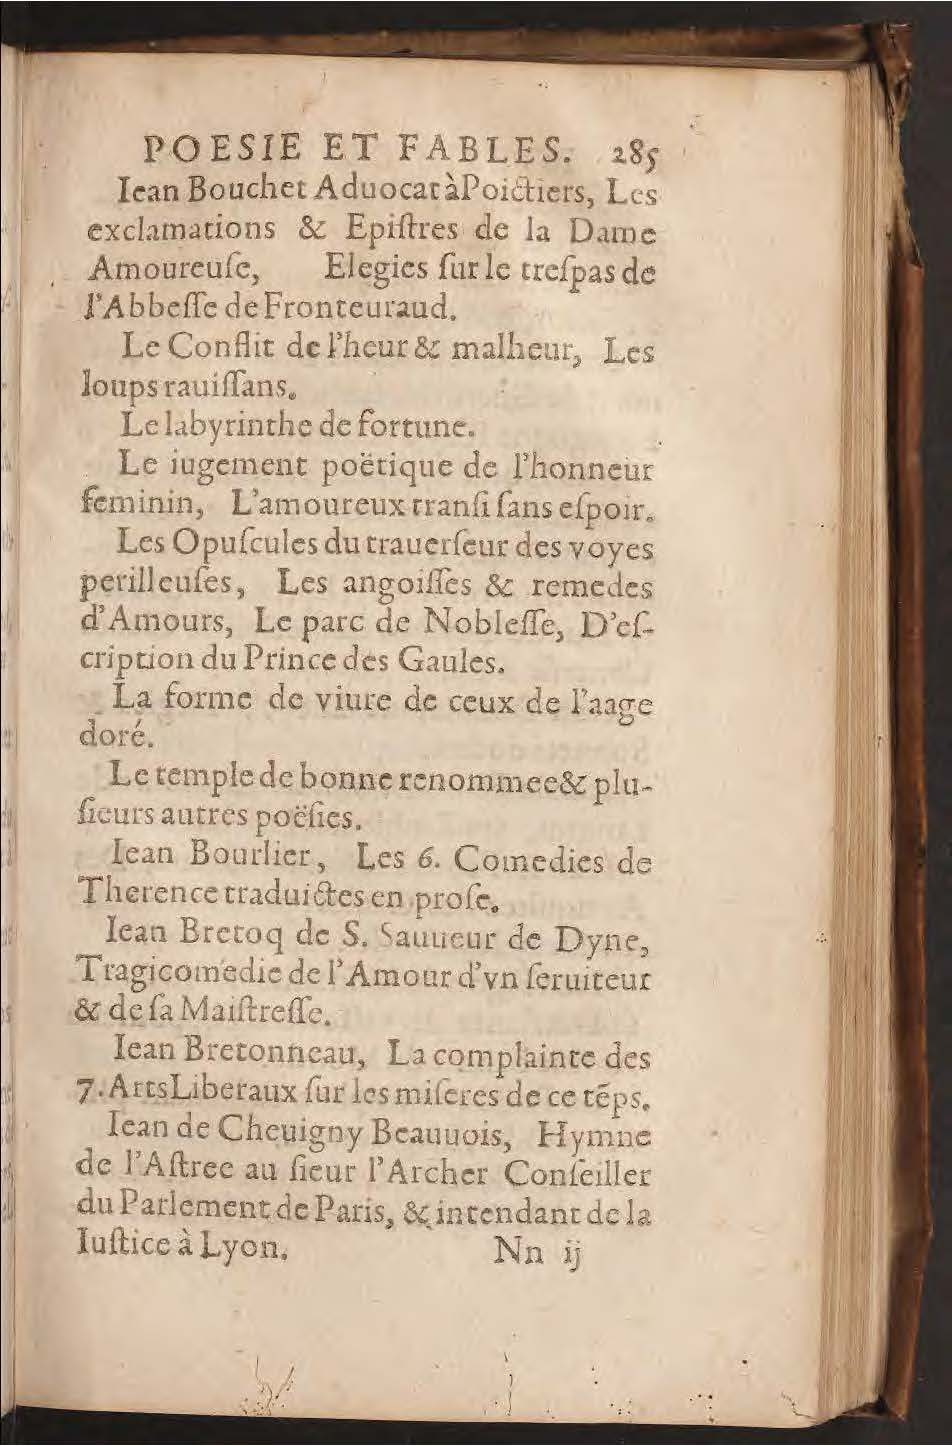 POESIE ET FABLES. 285
Iean Bouchet Aduocat àPoictiers, Les
exclamations & Epiſtres de la Dame
Amoureuſe, Elegies ſur le treſpas de
l'Abbeſſe de Fronteuraud.
Le Conflit de l'heur & malheur, Les
loups rauiſſans.
Le labyrinthe de fortune.
Le iugement poëtique de l'honneur
feminin, L'amoureux tranſi ſans eſpoir.
Les Opuſcules du trauerſeur des voyes
perilleuſes, Les angoiſſes & remedes
d'Amours, Le parc de Nobleſſe, D'eſ-
cription du Prince des Gaules.
La forme de viure de ceux de l'aage
doré.
Le temple de bonne renommee& plu-
ſieurs autres poëſies.
Iean Bourlier, Les 6. Comedies de
Therence traduictes en proſe.
Iean Bretoq de S. Sauueur de Dyne,
Tragicomedie de l'Amour d'vn ſeruiteur
& de ſa Maiſtreſſe.
Iean Bretonneau, La complainte des
7. Arts Liberaux ſur les miſeres de ce tẽps.
Iean de Cheuigny Beauuois, Hymne
de l'Aſtree au ſieur l'Archer Conſeiller
du Parlement de Paris, & intendant de la
Iuſtice à Lyon. Nn ij